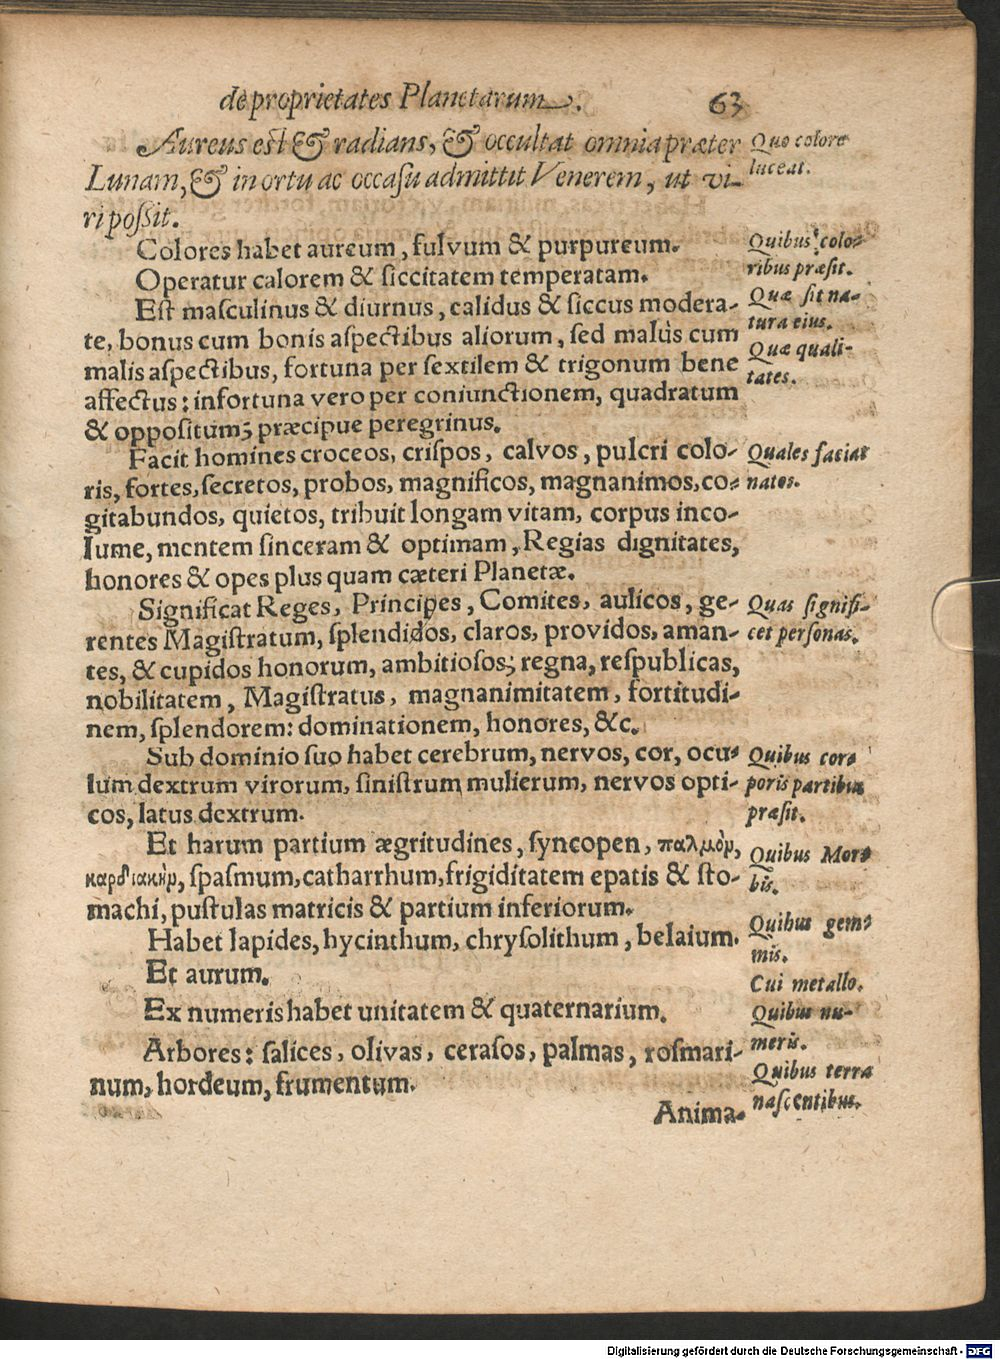 de proprietates Planetarum. 63
Aureus est & radians, & occultat omnia præter
Lunam, & in ortu ac occasu admittit Venerem, ut vi-
ri possit.
Quo colore
luceat.
Colores habet aureum, fulvum & purpureum.
Quibus colo-
ribus præsit.
Operatur calorem & siccitatem temperatam.
Est masculinus & diurnus, calidus & siccus modera-
te, bonus cum bonis aspectibus aliorum, sed malus cum
malis aspectibus, fortuna per sextilem & trigonum bene
affectus: infortuna vero per coniunctionem, quadratum
& oppositum; præcipue peregrinus.
Quæ sit na-
tura eius.
Quæ quali-
tates.
Facit homines croceos, crispos, calvos, pulcri colo-
ris, fortes, secretos, probos, magnificos, magnanimos, co-
gitabundos, quietos, tribuit longam vitam, corpus inco-
lume, mentem sinceram & optimam, Regias dignitates,
honores & opes plus quam cæteri Planetæ.
Quales faciat
natos.
Significat Reges, Principes, Comites, aulicos, ge-
rentes Magistratum, splendidos, claros, providos, aman-
tes, & cupidos honorum, ambitiosos; regna, respublicas,
nobilitatem, Magistratus, magnanimitatem, fortitudi-
nem, splendorem: dominationem, honores, &c.
Quas signifi-
cet personas.
Sub dominio suo habet cerebrum, nervos, cor, ocu-
lum dextrum virorum, sinistrum mulierum, nervos opti-
cos, latus dextrum.
Quibus cor-
poris partibus
præsit.
Et harum partium ægritudines, syncopen, παλμὸν,
καρδιακὴν, spasmum, catharrhum, frigiditatem epatis & sto-
machi, pustulas matricis & partium inferiorum.
Quibus Mor-
bis.
Habet lapides, hycinthum, chrysolithum, belaium.
Quibus gem-
mis.
Et aurum.
Cui metallo.
Ex numeris habet unitatem & quaternarium.
Quibus nu-
meris.
Arbores: salices, olivas, cerasos, palmas, rosmari-
num, hordeum, frumentum.
Quibus terra
nascentibus.
Anima-
Digitalisierung gefördert durch die Deutsche Forschungsgemeinschaft - DFG